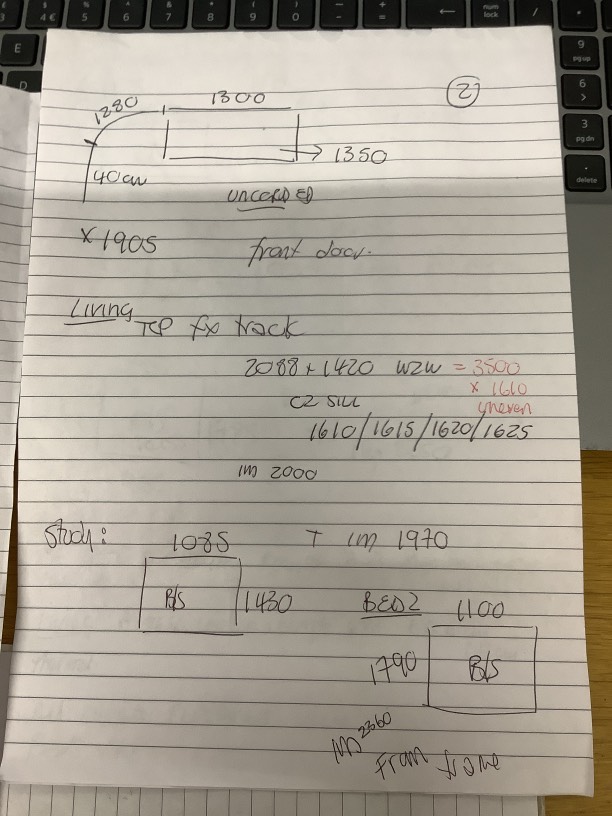 2)
1280
1300
40cm
→ 1350
UNCORDED
x 1905
front door.
Living
TOP fx track
2088 + 1420 W2W = 3500
x 1610
uneven
C2 SILL
1610/1615/1620/1625
IM 2000
Study:
1085
T IM 1970
B/S
1430
BED2
1100
1790
B/S
IM 2360
From frame